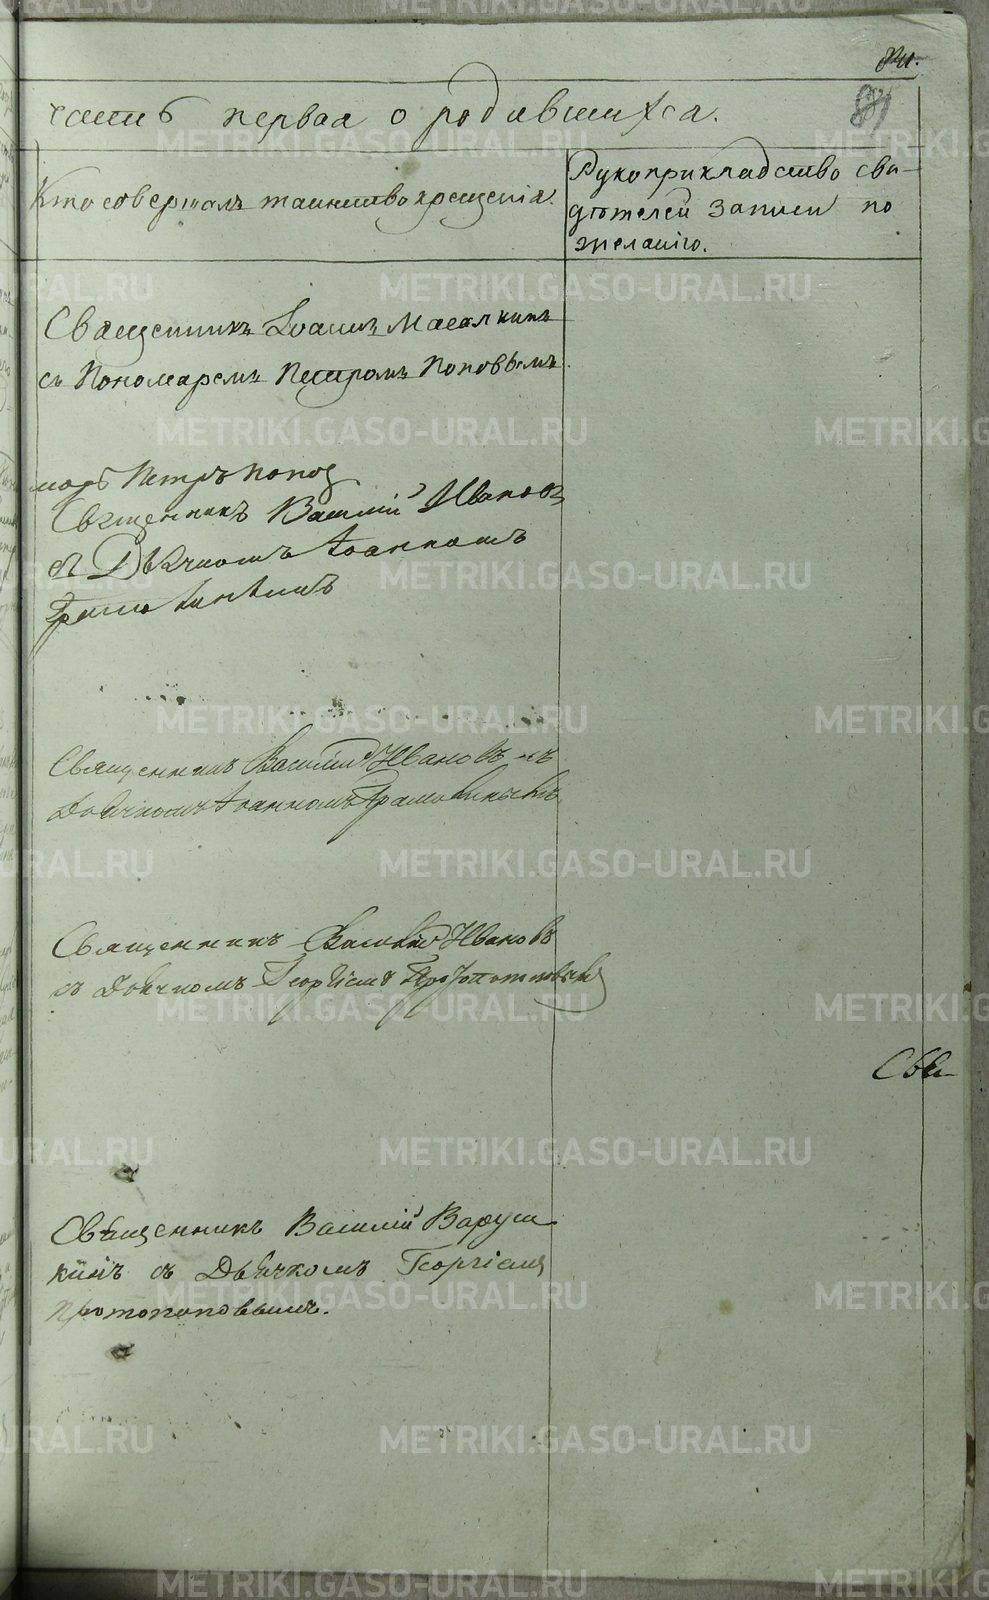 84.
часть первая о родившихся.
Кто совершалъ таинство крещенія.
Рукоприкладство сви-
дѣтелей записи по
желанію.
Священникъ Іоаннъ Масалкинъ
съ Пономаремъ Петромъ Поповымъ.
Петръ Попов
Священникъ Василій Ивановъ
съ Дьячкомъ Іоанномъ
Священникъ Василій Ивановъ съ
Дьячкомъ Іоанномъ
Священникъ Василій Ивановъ
съ Дьячкомъ Георгіемъ Протопоповымъ
Сви-
Священникъ Василій Варуш
кинъ съ Дьячкомъ Георгіемъ
Протопоповымъ.
METRIKI.GASO-URAL.RU